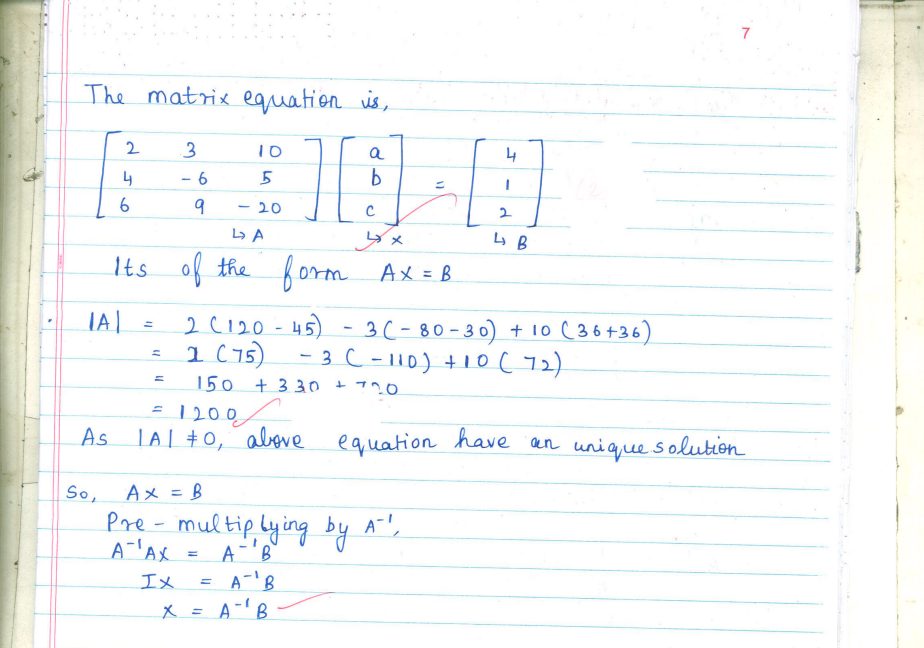 7
The matrix equation is,
[ 2 3 10 ] [ a ] [ 4 ]
[ 4 -6 5 ] [ b ] = [ 1 ]
[ 6 9 -20 ] [ c ] [ 2 ]
↳ A ↳ X ↳ B
Its of the form AX = B
|A| = 2 (120 - 45) - 3(-80-30) + 10 (36+36)
= 2 (75) - 3 (-110) + 10 (72)
= 150 + 330 + 720
= 1200
As |A| ≠ 0, above equation have an unique solution
So, AX = B
Pre-multiplying by A⁻¹,
A⁻¹AX = A⁻¹B
IX = A⁻¹B
X = A⁻¹B